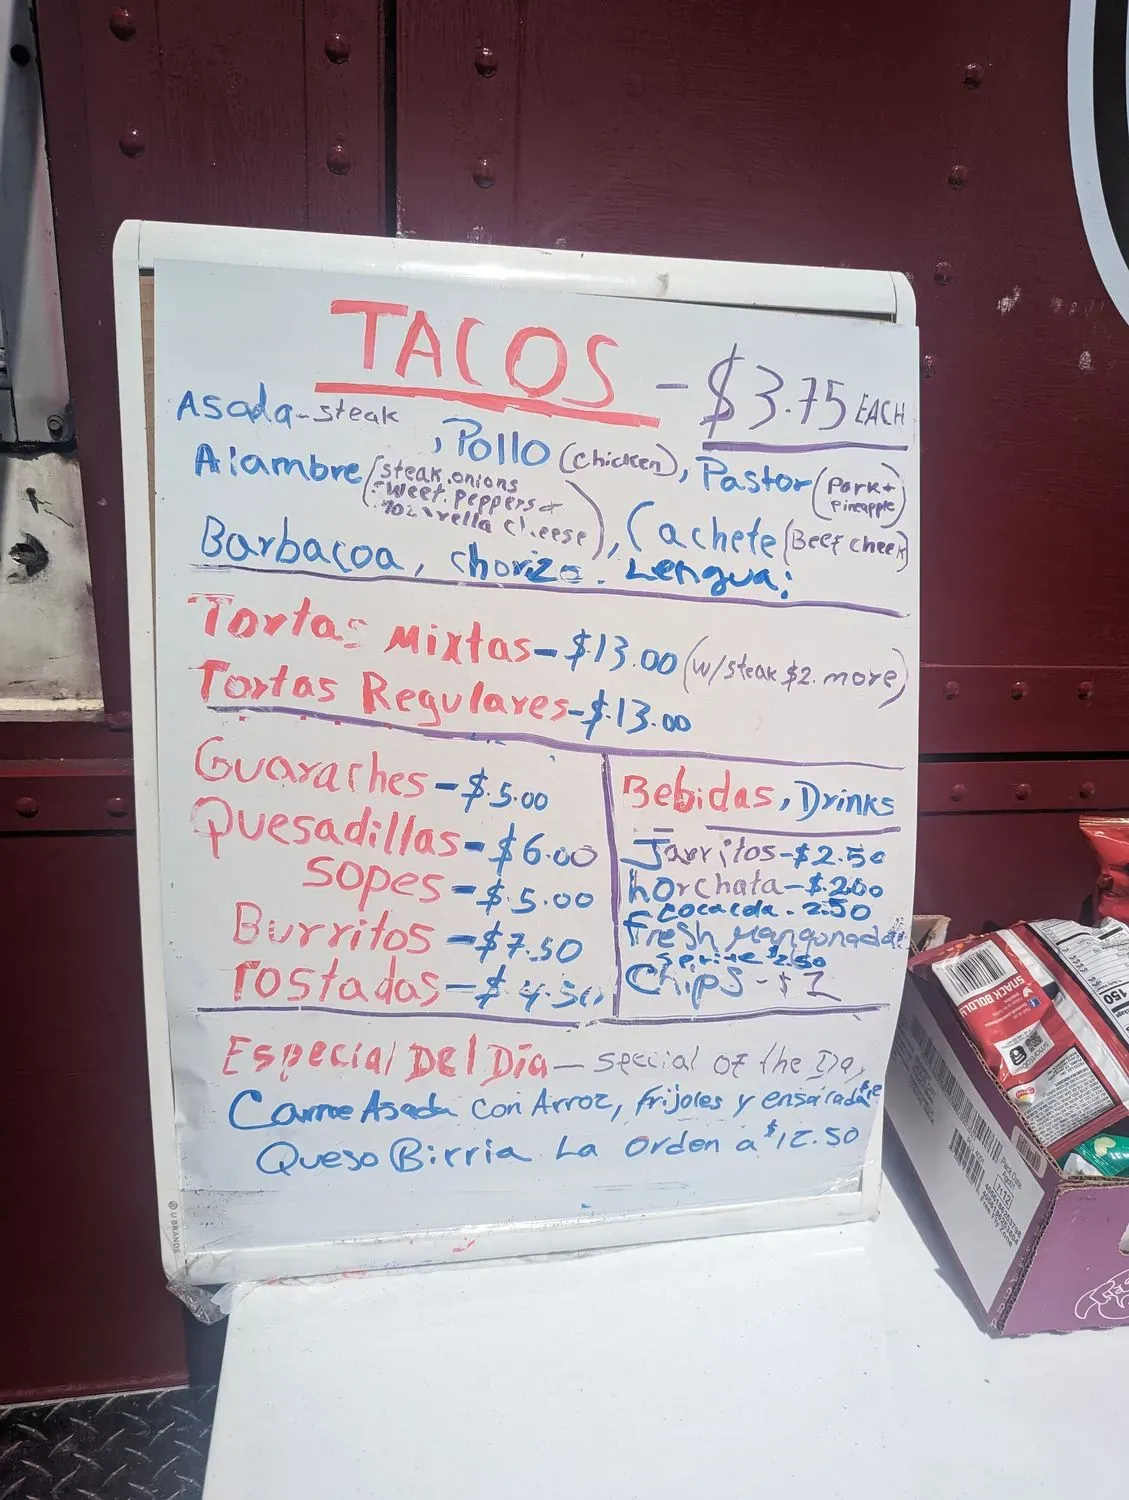 TACOS - $3.75 EACH
Asada - steak, Pollo (chicken), Pastor (Pork + Pineapple)
Alambre (steak, onions
sweet peppers &
mozzarella cheese), Cachete (Beef cheek)
Barbacoa, chorizo, Lengua;
Tortas Mixtas - $13.00 (w/steak $2. more)
Tortas Regulares - $13.00
Guaraches - $5.00
Quesadillas - $6.00
Sopes - $5.00
Burritos - $7.50
Tostadas - $4.50
Bebidas, Drinks
Jarritos - $2.50
horchata - $2.00
cocacola - 2.50
Fresh Mangonada
Sprite $2.50
Chips - $1
Especial Del Día - special of the Day
Carne Asada con Arroz, frijoles y ensalada de
Queso Birria La Orden a $12.50
U BRANDS
SNACK BOLDLY
150